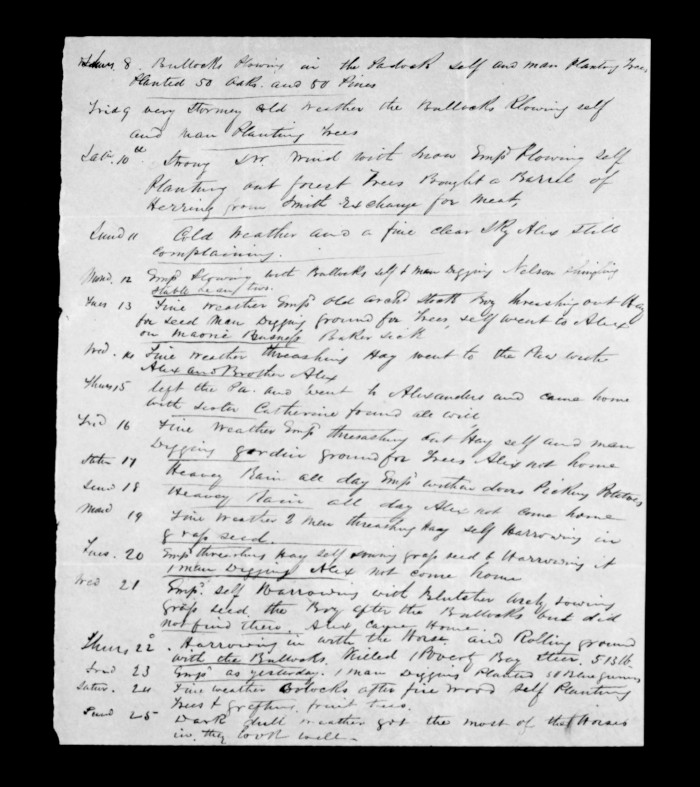 Thurs. 8. Bullocks Plowing in the Padock self and man Planting Trees
Planted 50 Oaks. and 50 Pines
Frid 9 very Stormey Cold Weather the Bullocks Plowing self
and man Planting Trees
Satr. 10th. Strong SW. Wind with snow Empd Plowing self
Planting out forest Trees Bought a Barrel of
Herring from Smith Exchange for Meat,
Sund 11 Cold Weather and a fine clear Sky Alex still
complaining.
Mond. 12 Empd Plowing with Bullocks self & man Digging Nelson shingling
stable
Tues 13 Fine weather Empd Old Archd Stock Boy threashing out Hay
for seed Man Digging ground for Trees, self went to Alex
on Maorie Busness Baker sick
Wed. 14 Fine weather threashing Hay went to the Pa wrote
Alex and Brother Alex
Thurs 15 left the Pa. and Went to Alexanders and came home
with sister Catherine found all well
Frid 16 Fine Weather Empd threashing out Hay self and man
Digging gardin ground for Trees. Alex not home
Satur 17 Heavey Rain all day Empd within doors Picking Potatoes
Sund 18 Heavey Rain all day Alex not come home
Mond 19 Fine Weather 2 men threashing Hay self Harrowing in
grass seed.
Tues. 20 Empd threashing Hay self sowing grass seed & Harrowing it
1 man Digging Alex not come home
Wed 21 Empd. self Harrowing with Archy sowing
grass seed, the Boy after the Bullocks but did
not find them. Alex came Home.
Thurs 22d. Harrowing in with the Horse, and Rolling ground
with the Bullocks, Killed 1 Poverty Bay steer. 513 lb
Frid 23 Empd as yesterday. 1 man Digging Planted 50 Blue gums
Satur. 24 Fine weather Bolocks after fire wood self Planting
Trees & grafting fruit trees.
Sund 25 Dark dull weather got the most of the Horses
in, they look well.